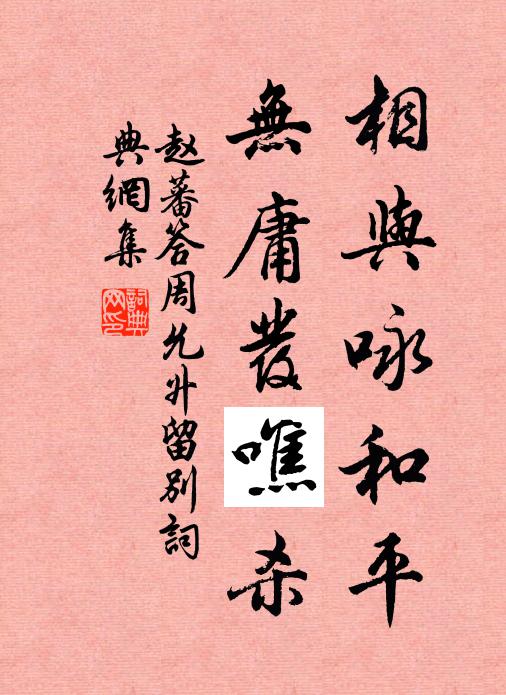 相與咏和平
無庸發噍杀
赵蕃答周允升留别詞
典網集
詞典网印